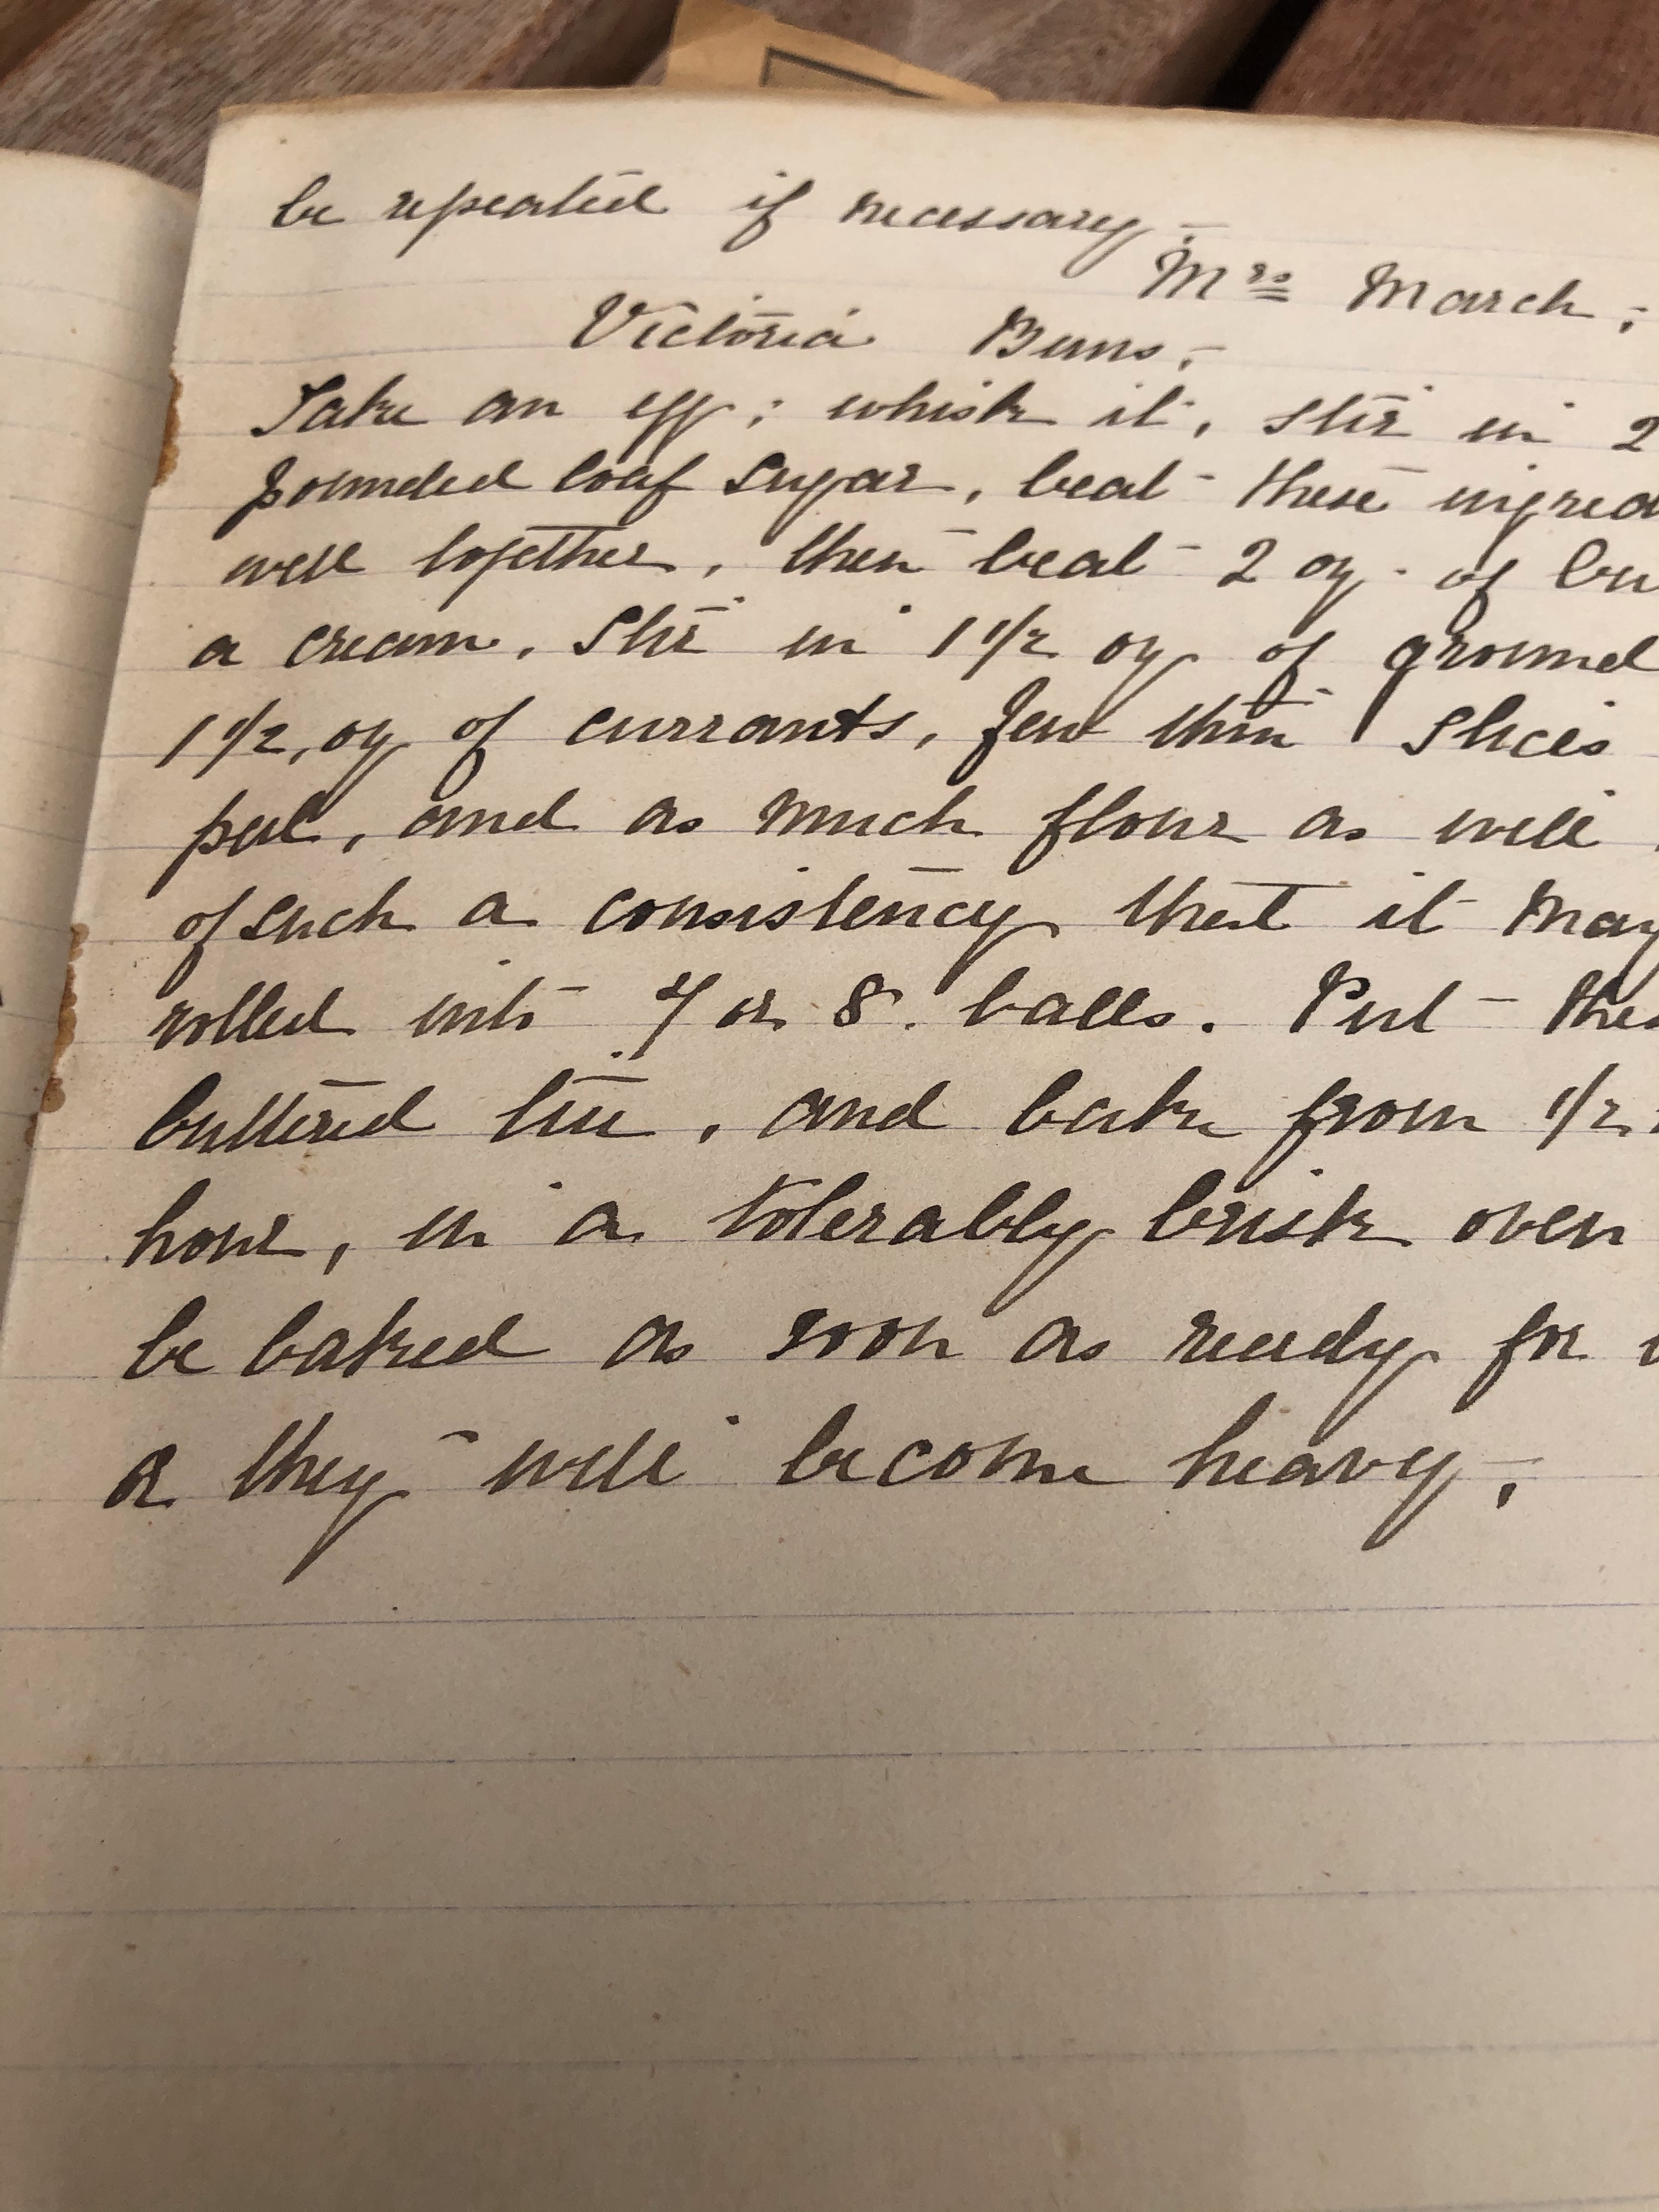 be repeated if necessary,-
Mrs March,-
Victoria Buns,-
Take an egg; whisk it, stir in 2
pounded loaf sugar, beat these ingred
well together, then beat 2 oz. of bu
a cream. Stir in 1 1/2 oz of ground
1 1/2, oz of currants, few thin slices
peel, and as much flour as will
of such a consistency that it may
rolled into 7 or 8 balls. Put thes
buttered tin, and bake from 1/2
hour, in a tolerably brisk oven
be baked as soon as ready for
or they will become heavy,-